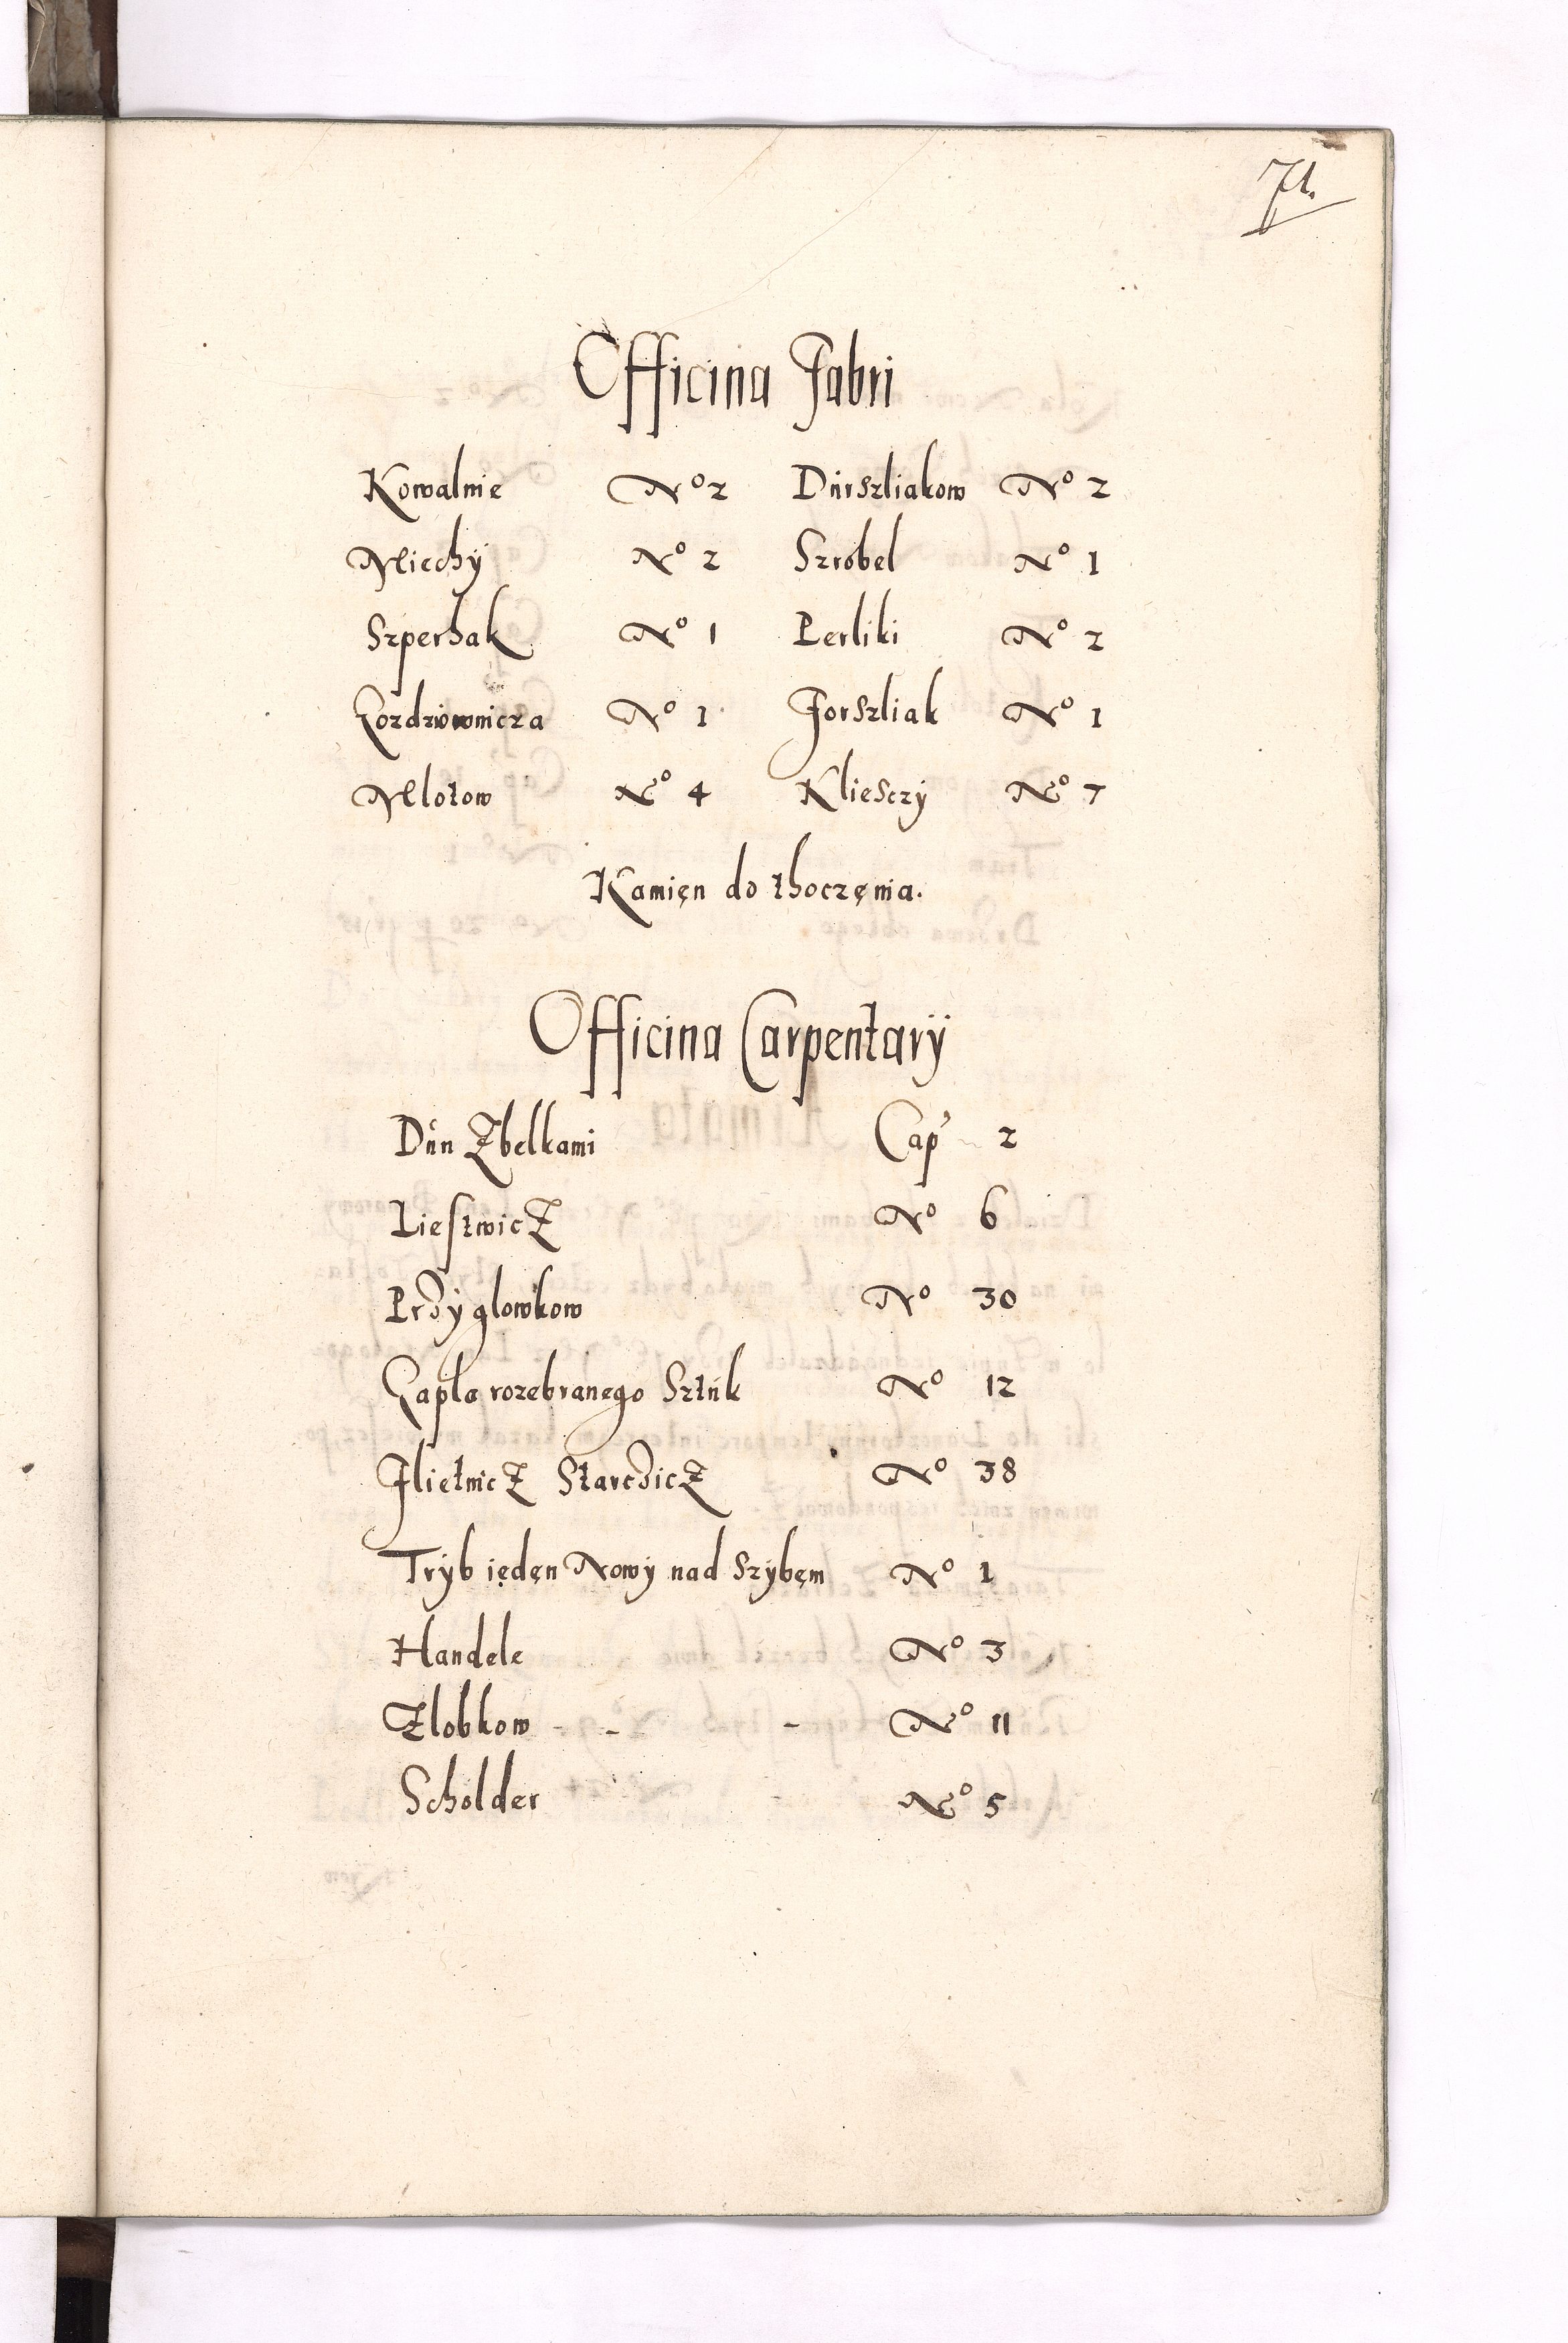 71.
Officina Fabri
Kowalnie No 2 Durszliakow No 2
Miechÿ No 2 Szrobel No 1
Szperhak No 1 Perliki No 2
Gozdziownicza No 1 Forszliak No 1
Młotow No 4 Kliesczÿ No 7
Kamięn do thoczęnia.
Officina Carpentarÿ
Dún Zbelkami Cap 2
LiestwicZ No 6
Przÿglowkow No 30
Capla rozebranego Sztúk No 12
StarchicZ No 38
Trÿb iędęn Nowÿ nad Szÿbęm No 1
Handele No 3
Zlobkow - - - No 11
Scholder No 5